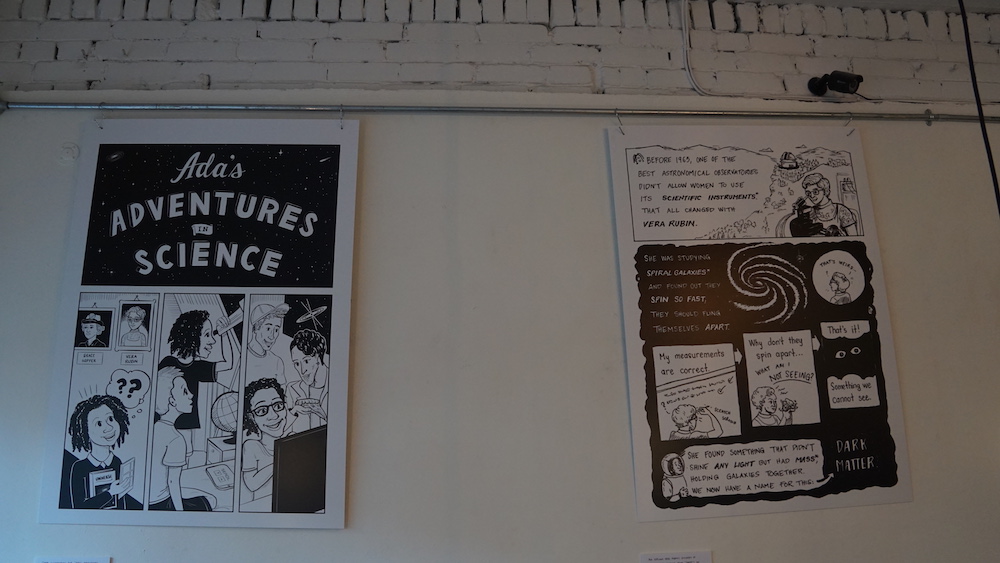 Ada's
ADVENTURES
IN
SCIENCE
GRACE
HOPPER
VERA
RUBIN
??
UNIVERSE
BEFORE 1965, ONE OF THE
BEST ASTRONOMICAL OBSERVATORIES
DIDN'T ALLOW WOMEN TO USE
ITS SCIENTIFIC INSTRUMENTS*
THAT ALL CHANGED WITH
VERA RUBIN.
SHE WAS STUDYING
SPIRAL GALAXIES*
AND FOUND OUT THEY
SPIN SO FAST,
THEY SHOULD FLING
THEMSELVES APART.
THAT'S WEIRD...
My measurements
are correct...
Why don't they
spin apart...
WHAT AM I
NOT SEEING?
That's it!
Something we
cannot see.
SHE FOUND SOMETHING THAT DIDN'T
SHINE ANY LIGHT BUT HAD MASS*
HOLDING GALAXIES TOGETHER.
WE NOW HAVE A NAME FOR THIS:
DARK
MATTER